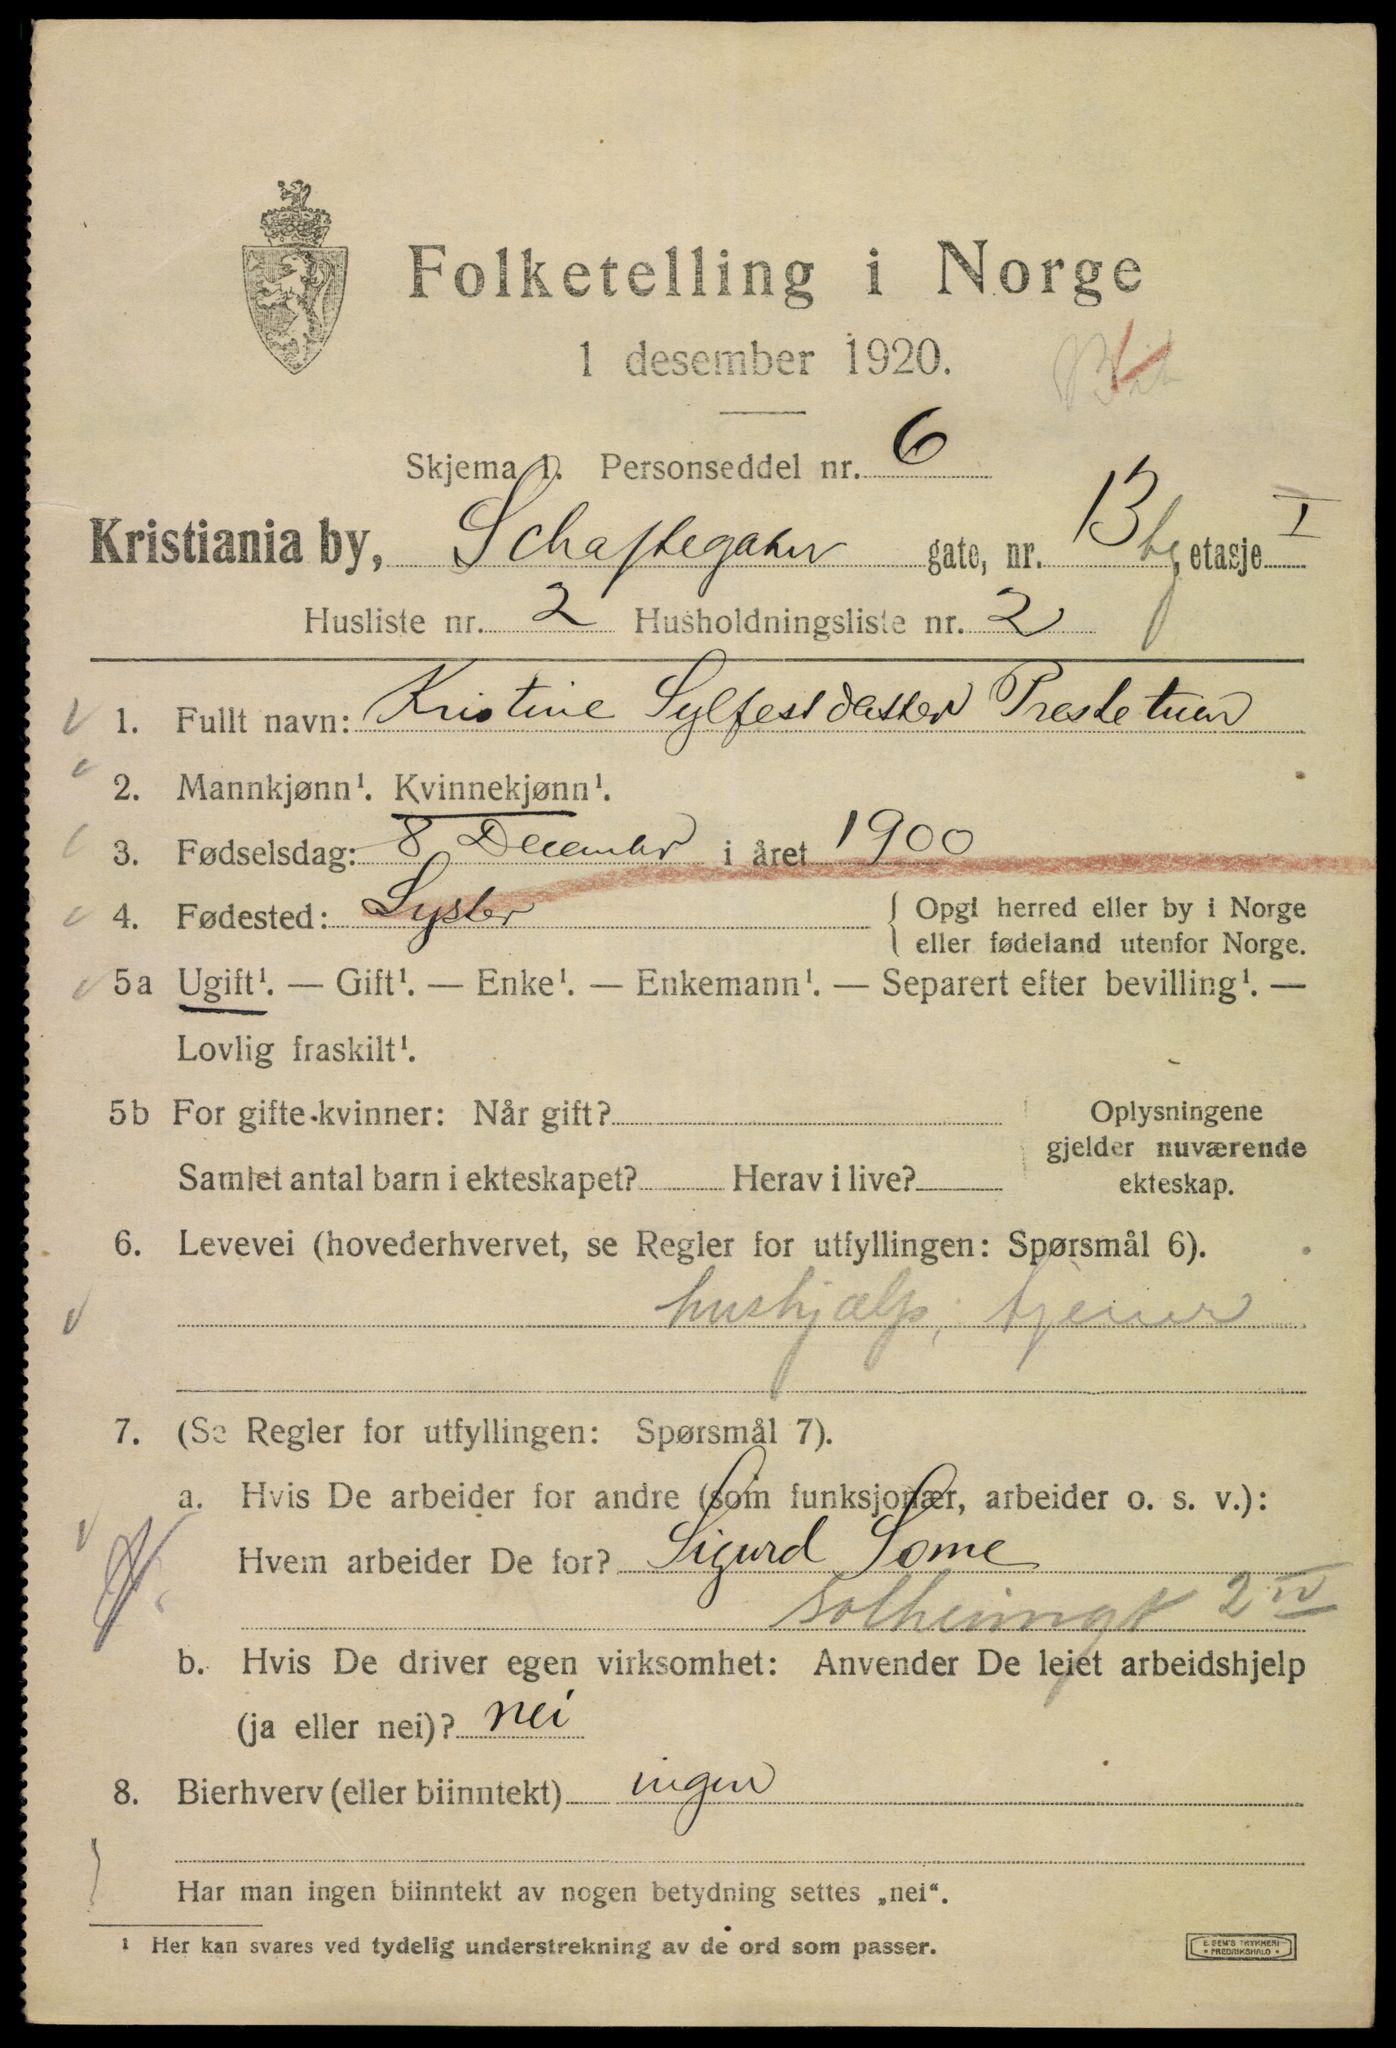 Folketelling i Norge
1 desember 1920.
Skjema 1. Personseddel nr. 6
Kristiania by, Schaftegaten gate, nr. 13 bg, etasje I
Husliste nr. 2 Husholdningsliste nr. 2
1. Fullt navn: Kristine Sylfestdatter Prestetuen
2. Mannkjønn¹. Kvinnekjønn¹.
3. Fødselsdag: 8 December i året 1900
4. Fødested: Lyster { Opgi herred eller by i Norge
eller fødeland utenfor Norge.
5a Ugift¹. — Gift¹. — Enke¹. — Enkemann¹. — Separert efter bevilling¹. —
Lovlig fraskilt¹.
5b For gifte kvinner: Når gift? Oplysningene
gjelder nuværende
Samlet antal barn i ekteskapet? Herav i live? ekteskap.
6. Levevei (hovederhvervet, se Regler for utfyllingen: Spørsmål 6).
hushjælp, tjener
7. (Se Regler for utfyllingen: Spørsmål 7).
a. Hvis De arbeider for andre (som funksjonær, arbeider o. s. v.):
Hvem arbeider De for? Sigurd Lome
Solheimgt 2 IV
b. Hvis De driver egen virksomhet: Anvender De leiet arbeidshjelp
(ja eller nei)? nei
8. Bierhverv (eller biinntekt) ingen
Har man ingen biinntekt av nogen betydning settes „nei“.
¹ Her kan svares ved tydelig understrekning av de ord som passer.
E. SEM'S TRYKKERI
• FREDRIKSHALD •